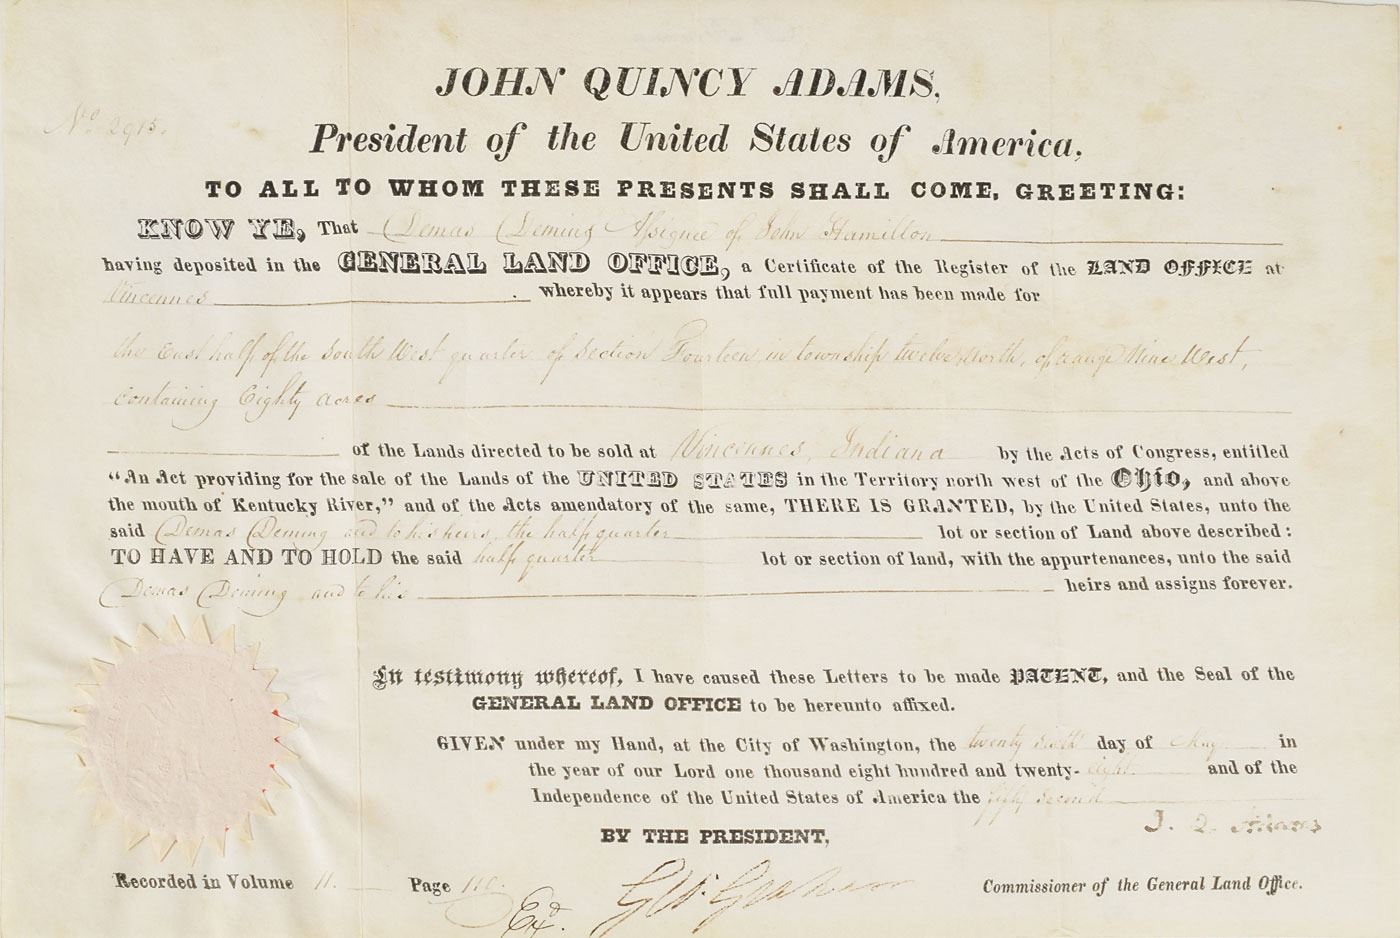 JOHN QUINCY ADAMS,
No. 2915.
President of the United States of America,
TO ALL TO WHOM THESE PRESENTS SHALL COME, GREETING:
KNOW YE, That Demas Deming Assignee of John Hamilton
having deposited in the GENERAL LAND OFFICE, a Certificate of the Register of the LAND OFFICE at
Vincennes whereby it appears that full payment has been made for
the East half of the South West quarter of Section Fourteen, in township twelve North, of range Nine West,
containing Eighty acres
of the Lands directed to be sold at Vincennes, Indiana by the Acts of Congress, entitled
“An Act providing for the sale of the Lands of the UNITED STATES in the Territory north west of the Ohio, and above
the mouth of Kentucky River,” and of the Acts amendatory of the same, THERE IS GRANTED, by the United States, unto the
said Demas Deming and to his heirs, the half quarter lot or section of Land above described:
TO HAVE AND TO HOLD the said half quarter lot or section of land, with the appurtenances, unto the said
Demas Deming and to his heirs and assigns forever.
In testimony whereof, I have caused these Letters to be made PATENT, and the Seal of the
GENERAL LAND OFFICE to be hereunto affixed.
GIVEN under my Hand, at the City of Washington, the twenty sixth day of May in
the year of our Lord one thousand eight hundred and twenty-eight and of the
Independence of the United States of America the fifty second
J. Q. Adams
BY THE PRESIDENT,
Recorded in Volume 11. Page 110. Exd. G W. Graham Commissioner of the General Land Office.